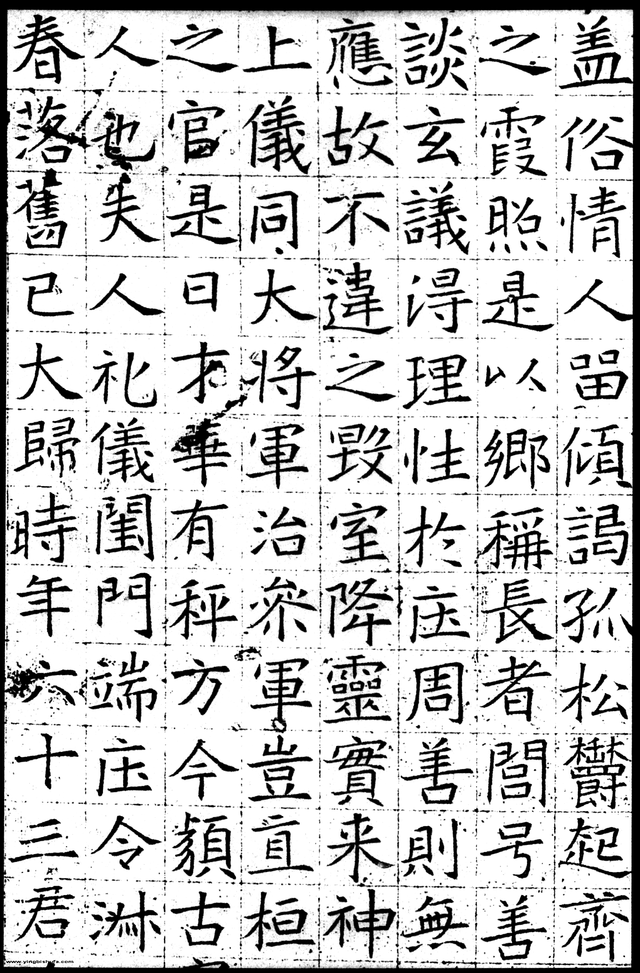 盖俗情人㽞傾謁孤松欝起齊
之霞照是以鄉稱長者閭号善
談玄議淂理性扵庄周善則無
應故不違之毀室降靈實来神
上儀同大將軍治叅軍豈直桓
之官是曰才華有秤方今頴古
人也夫人礼儀閨門端庄令淋
春落舊已大歸時年六十三君